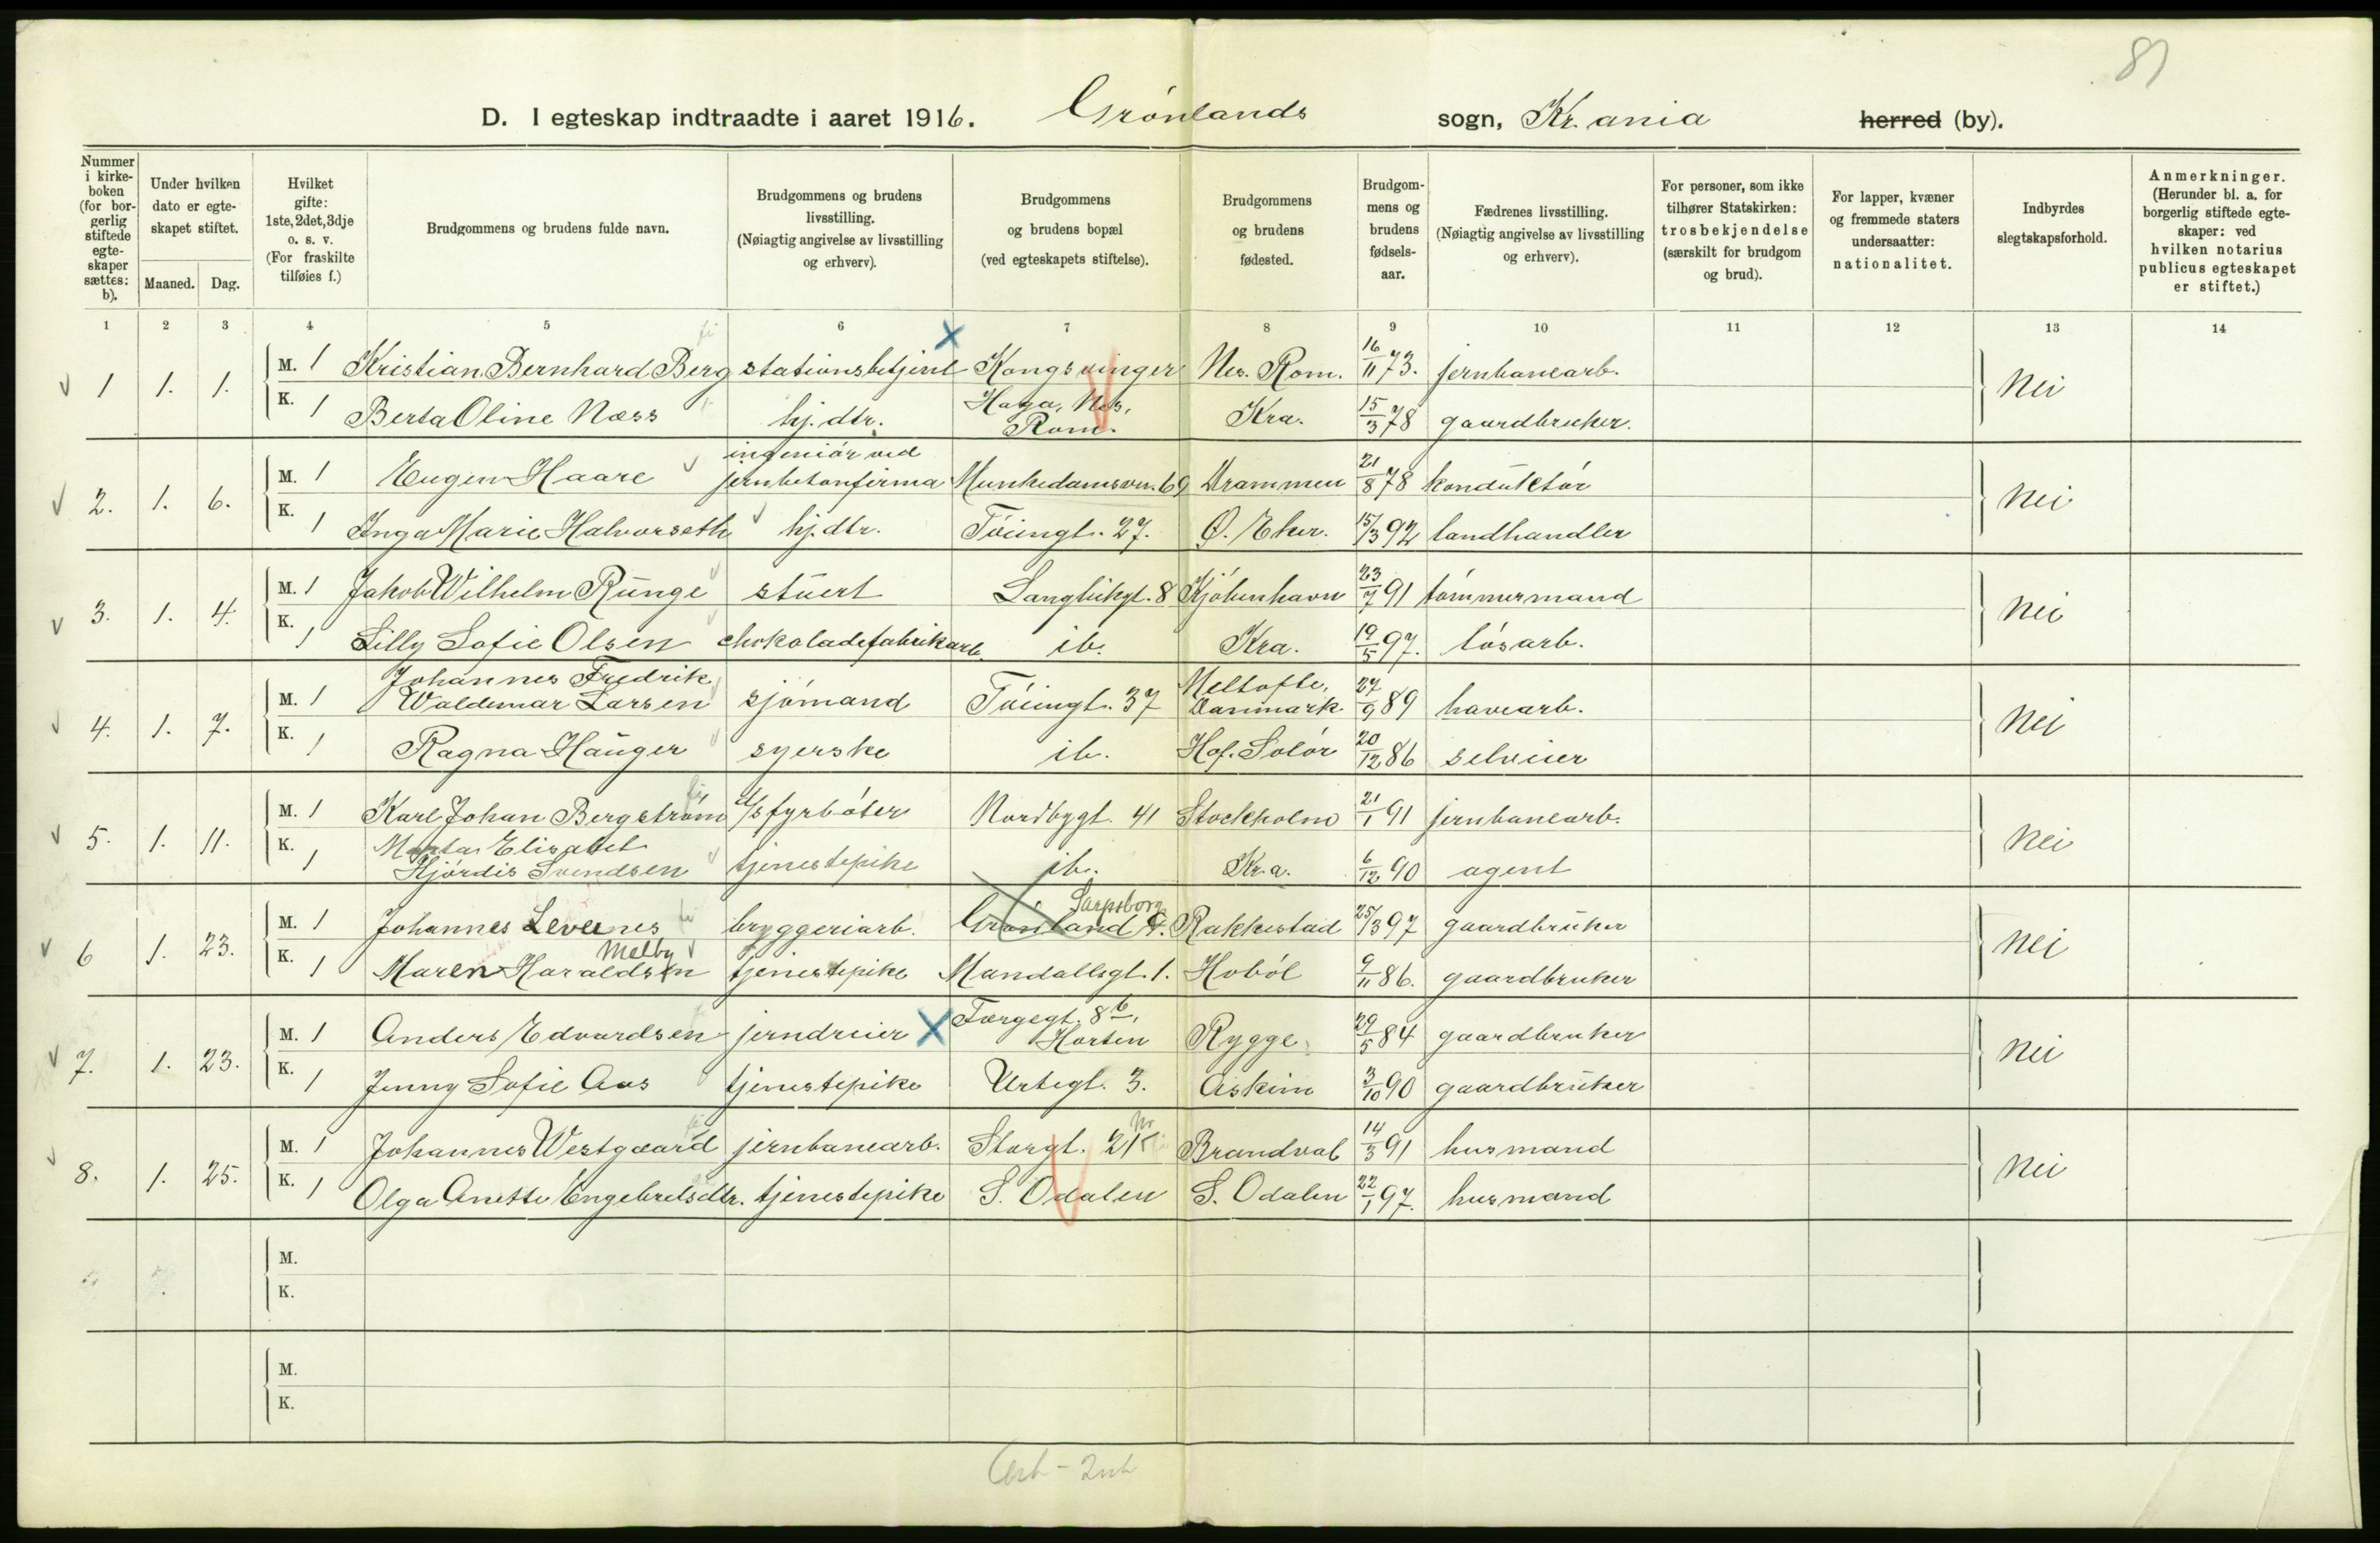 81
D. I egteskap indtraadte i aaret 1916. Grønlands sogn, Kr.ania herred (by).
Nummer i kirkeboken (for borgerlig stiftede egteskaper sættes: b).
Under hvilken dato er egteskapet stiftet.
Maaned. Dag.
Hvilket gifte: 1ste, 2det, 3dje o. s. v. (For fraskilte tilføies f.)
Brudgommens og brudens fulde navn.
Brudgommens og brudens livsstilling. (Nøiagtig angivelse av livsstilling og erhverv).
Brudgommens og brudens bopæl (ved egteskapets stiftelse).
Brudgommens og brudens fødested.
Brudgommens og brudens fødselsaar.
Fædrenes livsstilling. (Nøiagtig angivelse av livsstilling og erhverv).
For personer, som ikke tilhører Statskirken: trosbekjendelse (særskilt for brudgom og brud).
For lapper, kvæner og fremmede staters undersaatter: nationalitet.
Indbyrdes slegtskapsforhold.
Anmerkninger. (Herunder bl. a. for borgerlig stiftede egteskaper: ved hvilken notarius publicus egteskapet er stiftet.)
1 2 3 4 5 6 7 8 9 10 11 12 13 14
1 1. 1. M. 1 Kristian Bernhard Berg stationsbetjent Kongsvinger Nes. Rom. 16/11 73. jernbanearb. Nei
K. 1 Berta Oline Næss hj. dtr. Haga, Nes, Rom. Kra. 15/3 78 gaardbruker.
2. 1. 6. M. 1 Eugen Haare ingeniör ved jernbetonfirma Munkedamsvn. 69 Drammen 21/8 78 konduktör Nei
K. 1 Inga Marie Halvorseth hj. dtr. Töiengt. 27. Ø. Eker. 15/3 92 landhandler
3. 1. 4. M. 1 Jakob Wilhelm Runge stuert Langlikgt. 8 Kjöbenhavn 23/7 91 tömmermand Nei
K. 1 Lilly Sofie Olsen chokoladefabrikarb. ib. Kra. 19/5 97. lösarb.
4. 1. 7. M. 1 Johannes Fredrik Waldemar Larsen sjömand Töiengt. 37 Meltofte, Danmark 27/9 89 havearb. Nei
K. 1 Ragna Hauger syerske ib. Hof. Solör 20/12 86 selveier
5. 1. 11. M. 1 Karl Johan Bergström d/s fyrböter Nordbygt. 41 Stockholm 21/1 91 jernbanearb. Nei
K. 1 Marta Elisabet Hjördis Svendsen tjenestepike ib. Kr.a. 6/12 90 agent
6 1. 23. M. 1 Johannes Levernes bryggeriarb. Grönland 4. Sarpsborg Rakkestad 25/3 97 gaardbruker Nei
K. 1 Maren Haraldsen Melby tjenestepike Mandallsgt. 1. Hoböl 9/11 86. gaardbruker
7. 1. 23. M. 1 Anders Edvardsen jerndreier Færgegt. 8 b, Horten Rygge 29/5 84 gaardbruker Nei
K. 1 Jenny Sofie Aas tjenestepike Urtegt. 3. Askim 3/10 90 gaardbruker
8. 1. 25. M. 1 Johannes Westgaard jernbanearb. Storgt. 21 Brandval 14/3 91 husmand Nei
K. 1 Olga Anette Engebretsdtr. tjenestepike S. Odalen S. Odalen 22/1 97. husmand
M.
K.
M.
K.